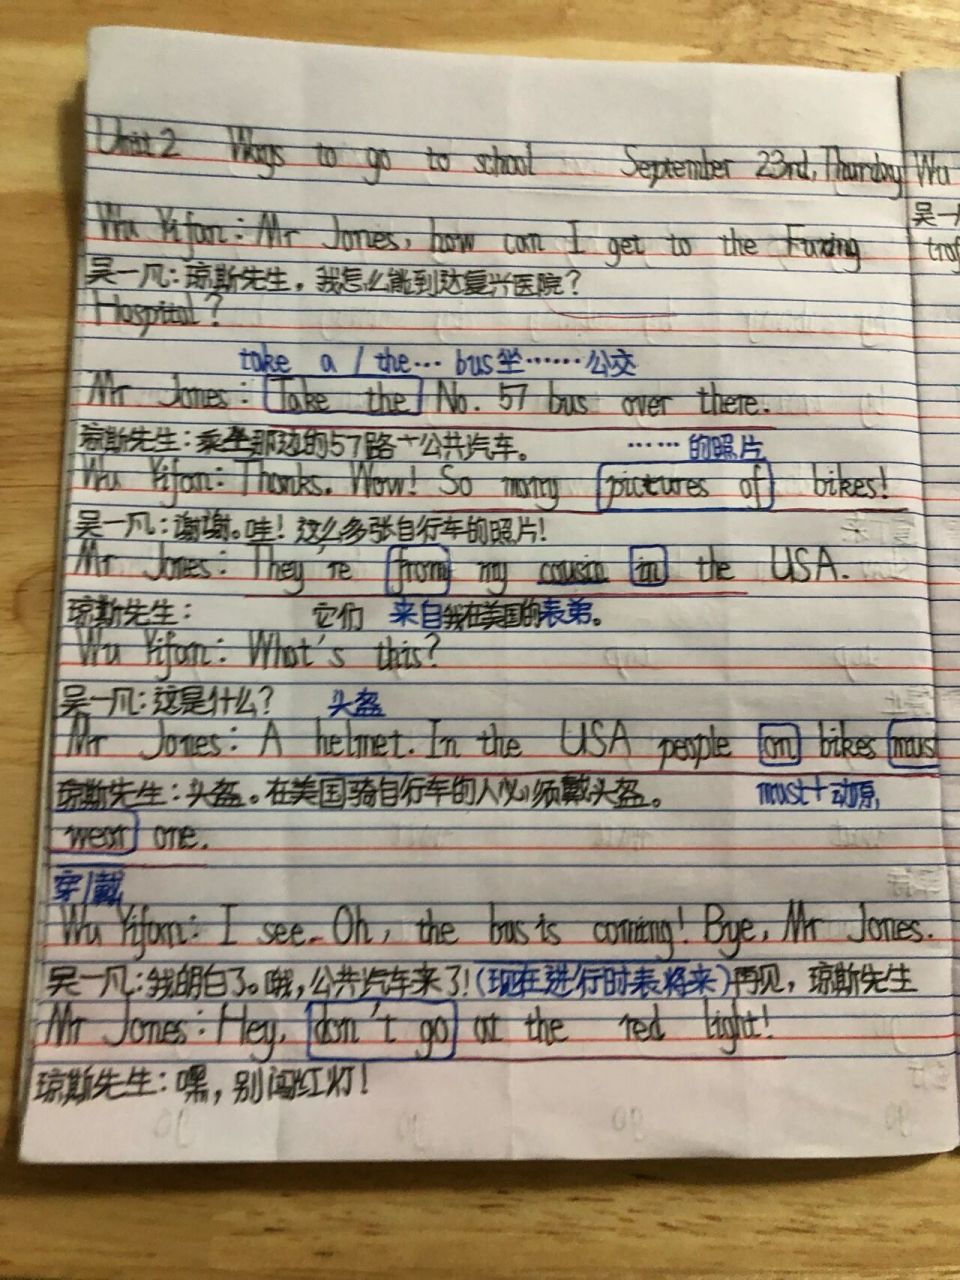 Unit 2 Ways to go to school September 23rd, Thursday
Wu Yifan: Mr Jones, how can I get to the Fuxing
吴一凡:琼斯先生,我怎么能到达复兴医院?
Hospital?
take a / the… bus坐……公交
Mr Jones: Take the No. 57 bus over there.
琼斯先生:乘坐那边的57路公共汽车。 ……的照片
Wu Yifan: Thanks. Wow! So many pictures of bikes!
吴一凡:谢谢。哇!这么多张自行车的照片!
Mr Jones: They're from my cousin in the USA.
琼斯先生: 它们 来自我在美国的表弟。
Wu Yifan: What's this?
吴一凡:这是什么? 头盔
Mr Jones: A helmet. In the USA people on bikes must
琼斯先生:头盔。在美国骑自行车的人必须戴头盔。 must+动原
wear one.
穿/戴
Wu Yifan: I see. Oh, the bus is coming! Bye, Mr Jones.
吴一凡:我明白了。哦,公共汽车来了!(现在进行时表将来)再见,琼斯先生
Mr Jones: Hey, don't go at the red light!
琼斯先生:嘿,别闯红灯!
Wu
吴一
traf